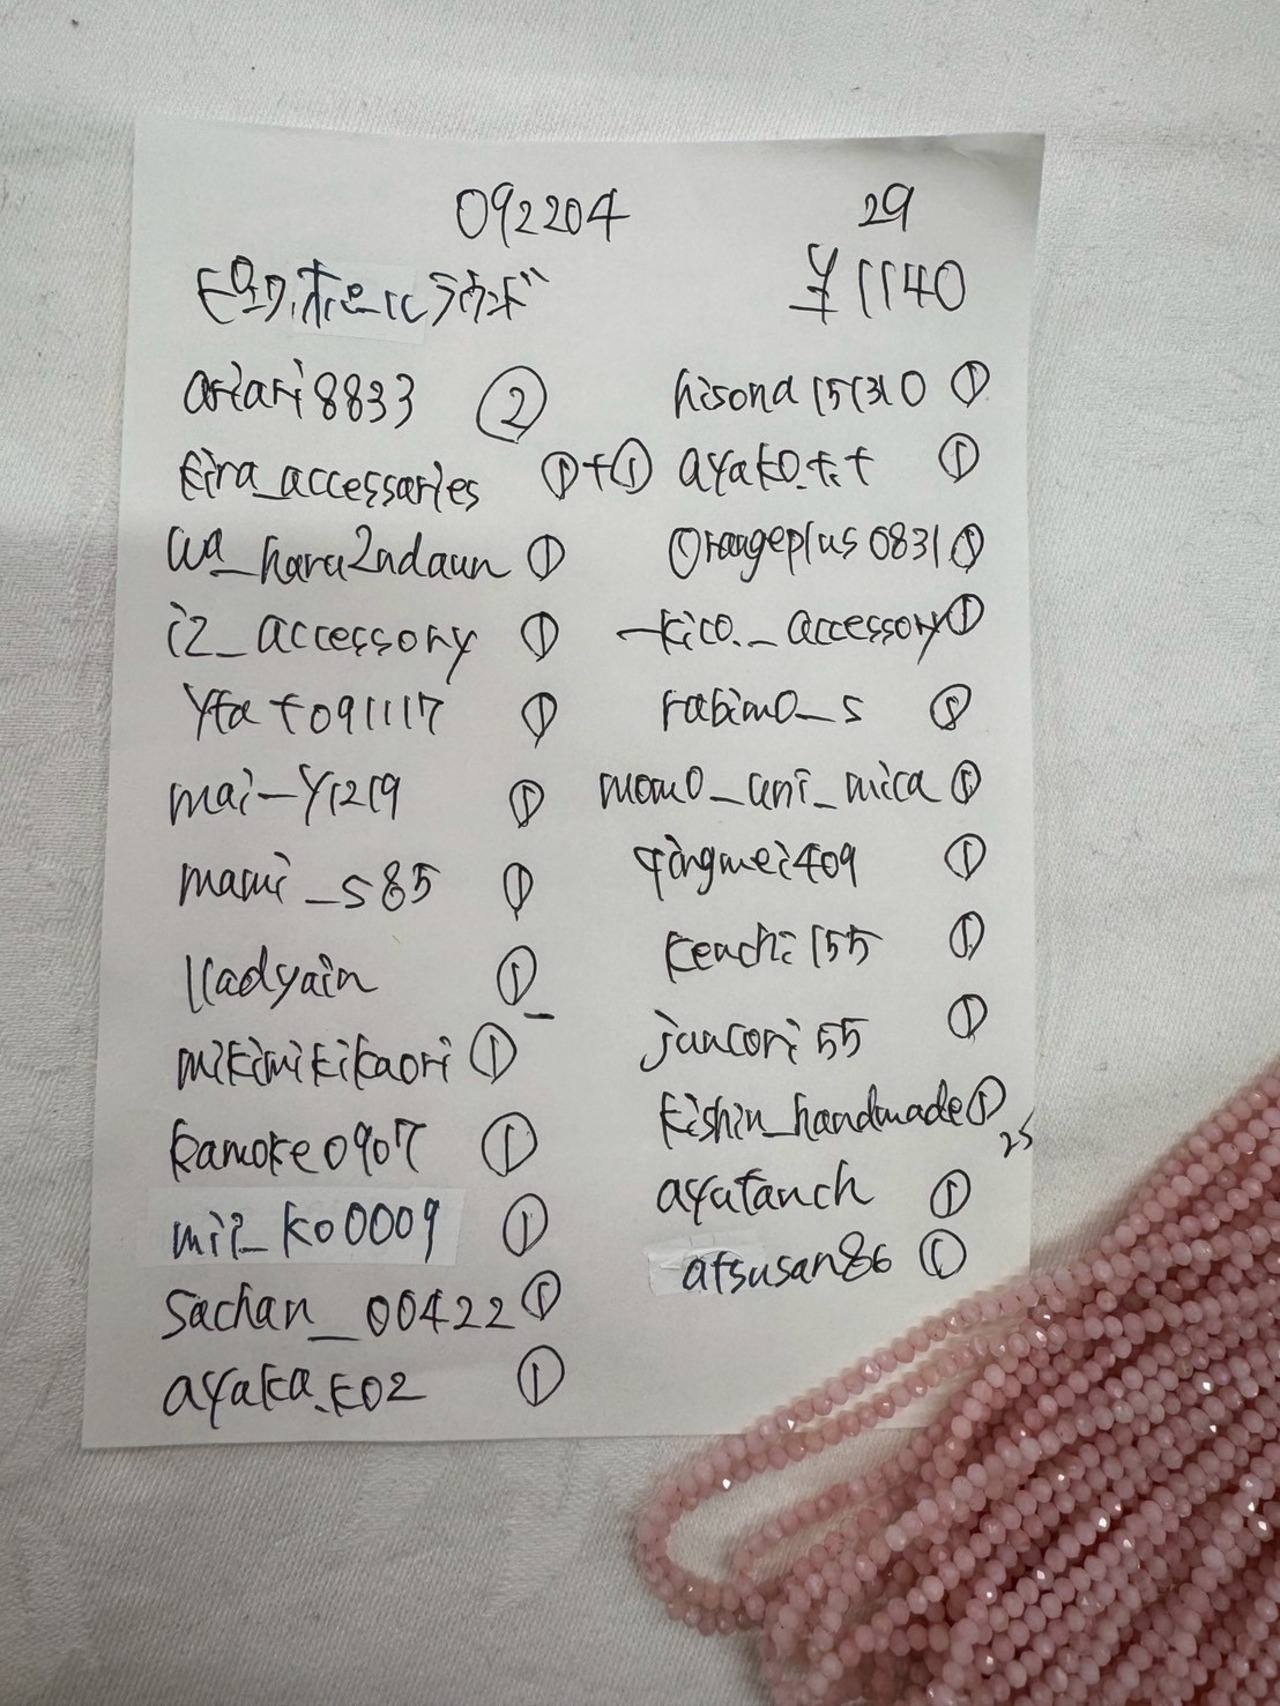 092204 29
ピンクオパールラウンド ¥1140
ariari8833 ②
kira_accessaries ①+①
wa_haru2ndaun ①
i2_accessory ①
Yfat091117 ①
mai-Y1219 ①
mami_s85 ①
lladyain ①
mikimikikaori ①
kamoke0907 ①
mii_ko0009 ①
Sachan_00422 ①
ayaka.k02 ①
hisona151310 ①
ayako.t.t ①
Orangeplus0831 ①
-kico._accessory ①
rabimo_s ①
momo_uni_mica ①
qingmei409 ①
kenchi155 ①
juncori55 ①
kishin_handmade ①
25
ayatanch ①
atsusan86 ①